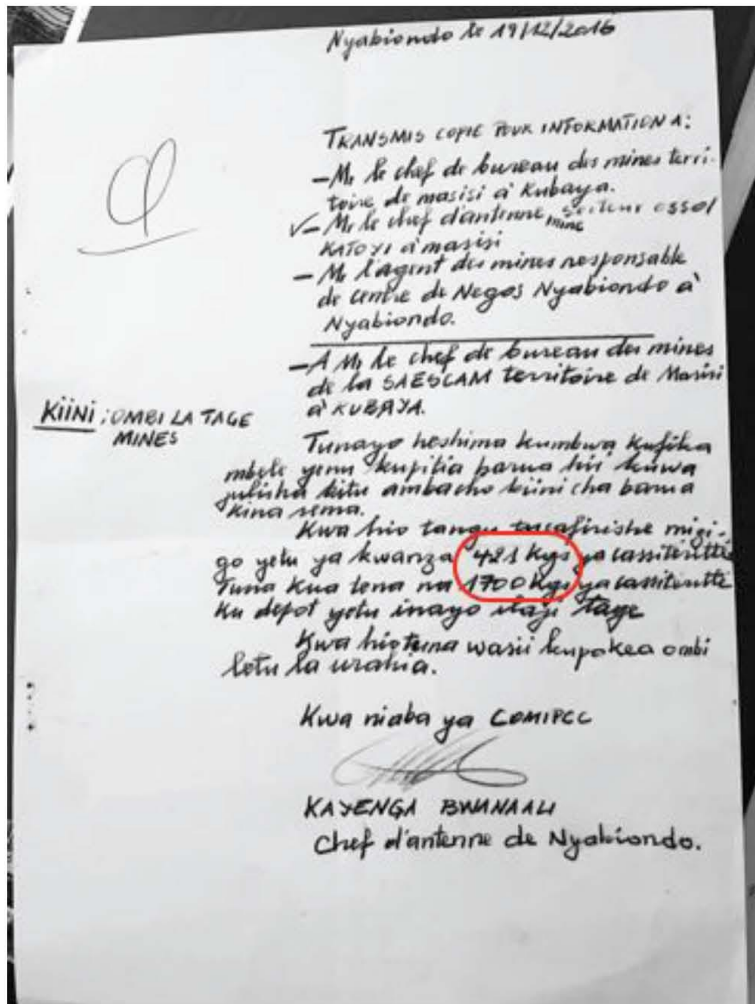 Nyabiondo le 19/12/2016
TRANSMIS COPIE POUR INFORMATION A:
- Mr le chef de bureau des mines terri-
toire de masisi à Kubaya.
- Mr le chef d'antenne mine secteur osso/
KATOYI à masisi
- Mr l'agent des mines responsable
de centre de Negos Nyabiondo à
Nyabiondo.
- A Mr le chef de bureau des mines
de la SAESCAM territoire de Masisi
à KUBAYA.
KIINI : OMBI LA TAGE
MINES
Tunayo heshima kumbwa kufika
mbele yenu kupitia barua hii kuwa
julisha kitu ambacho kiini cha barua
kina sema.
Kwa hio tangu tusafirishe mizi-
go yetu ya kwanza 421 Kgs ya cassiteritte
Tuna kua tena na 1700 Kgs ya cassiteritte
Ku depot yetu inayo itaji tage
Kwa hio tuna wasii kupokea ombi
letu la urahia.
Kwa niaba ya COMIPCC
KAYENGA BWANAALI
Chef d'antenne de Nyabiondo.